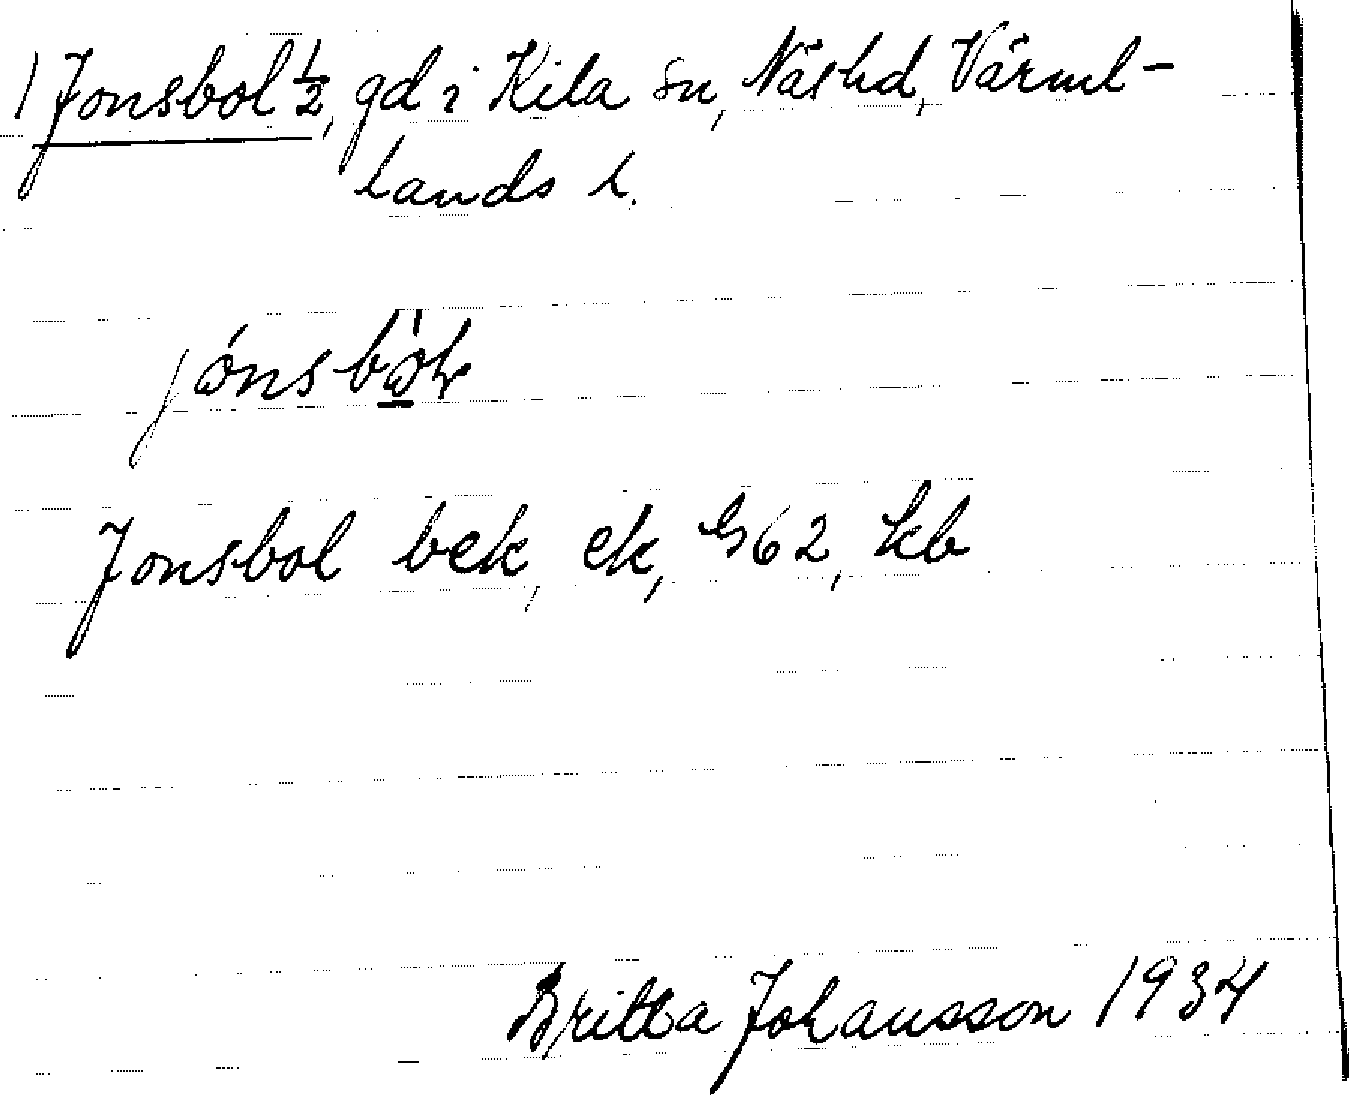 1 Jonsbol ½, gd i Kila sn, Näs hd, Värml-
lands l.
Jonsbol bek, ek, G62, kb
Britta Johansson 1934